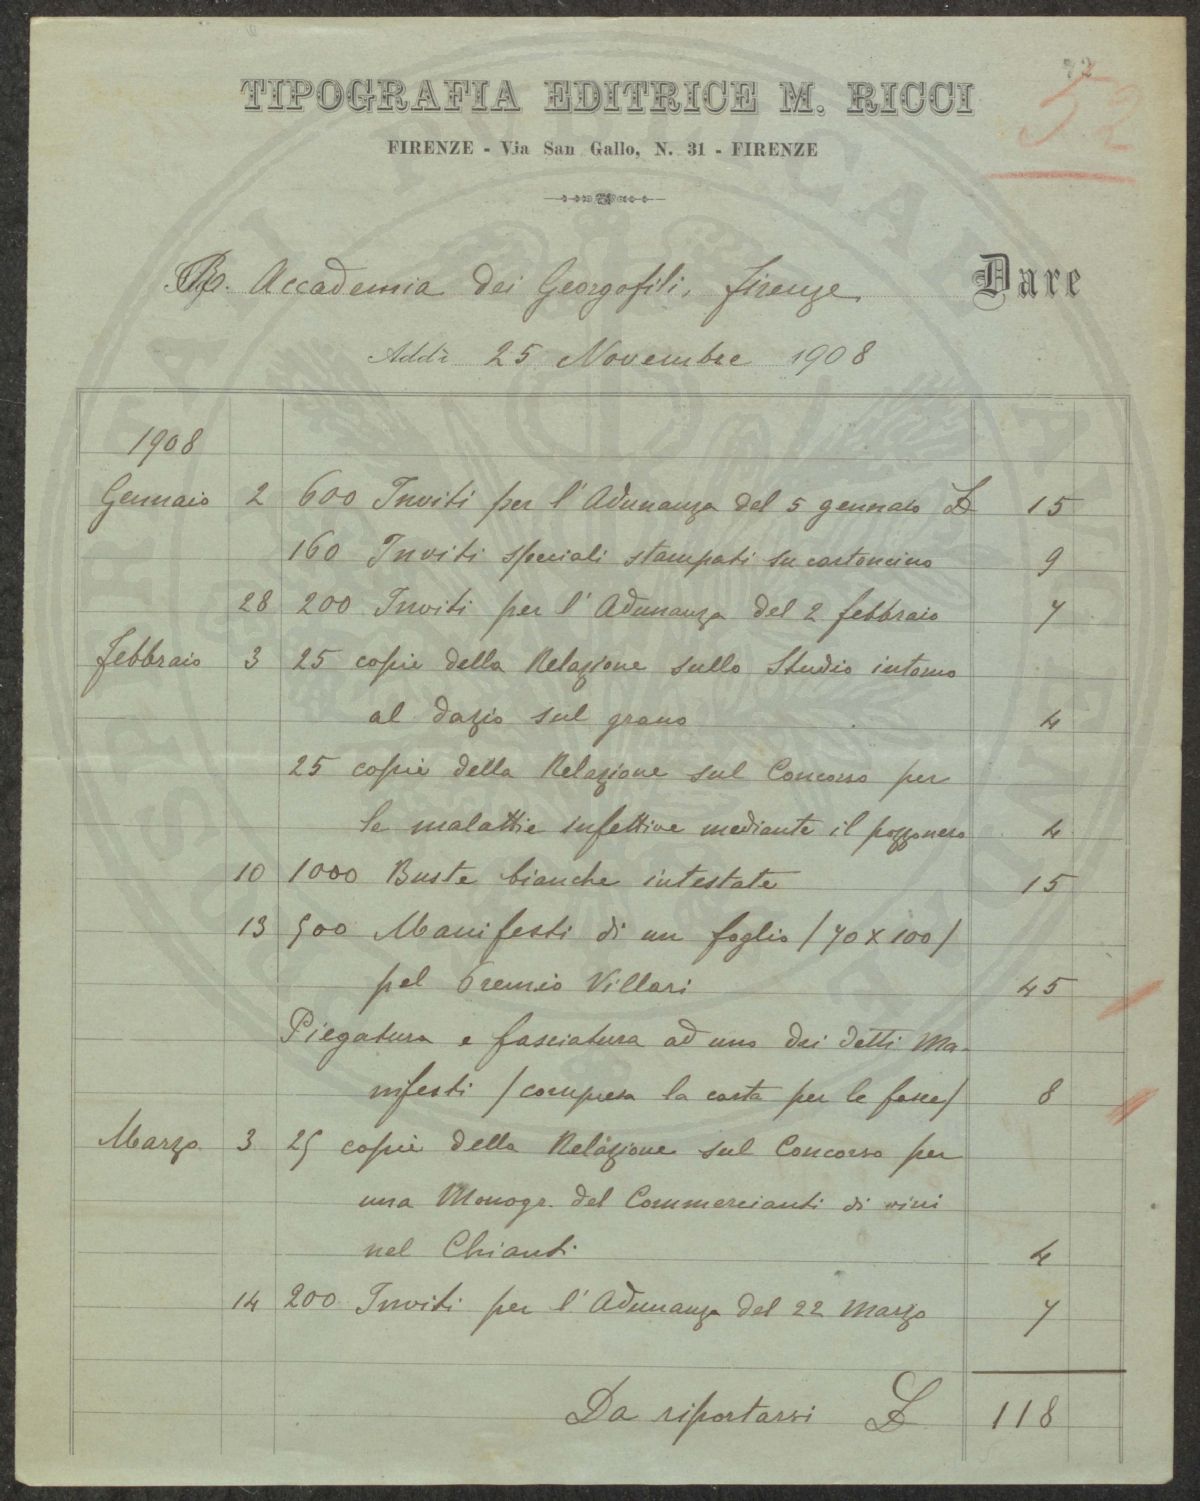 52
TIPOGRAFIA EDITRICE M. RICCI
FIRENZE - Via San Gallo, N. 31 - FIRENZE
R. Accademia dei Georgofili, Firenze Dare
Addì 25 Novembre 1908
1908
Gennaio 2 600 Inviti per l'Adunanza del 5 gennaio L 15
160 Inviti speciali stampati su cartoncino 9
28 200 Inviti per l'Adunanza del 2 febbraio 7
Febbraio 3 25 copie della Relazione sullo Studio intorno
al dazio sul grano 4
25 copie della Relazione sul Concorso per
le malattie infettive mediante il pozzonero 4
10 1000 Buste bianche intestate 15
13 500 Manifesti di un foglio (70 x 100)
pel Premio Villari 45
Piegatura e fasciatura ad uno dei detti Ma-
nifesti (compresa la carta per le fasce) 8
Marzo 3 25 copie della Relazione sul Concorso per
una Monogr. del Commercianti di vini
nel Chianti 4
14 200 Inviti per l'Adunanza del 22 Marzo 7
Da riportarsi L 118